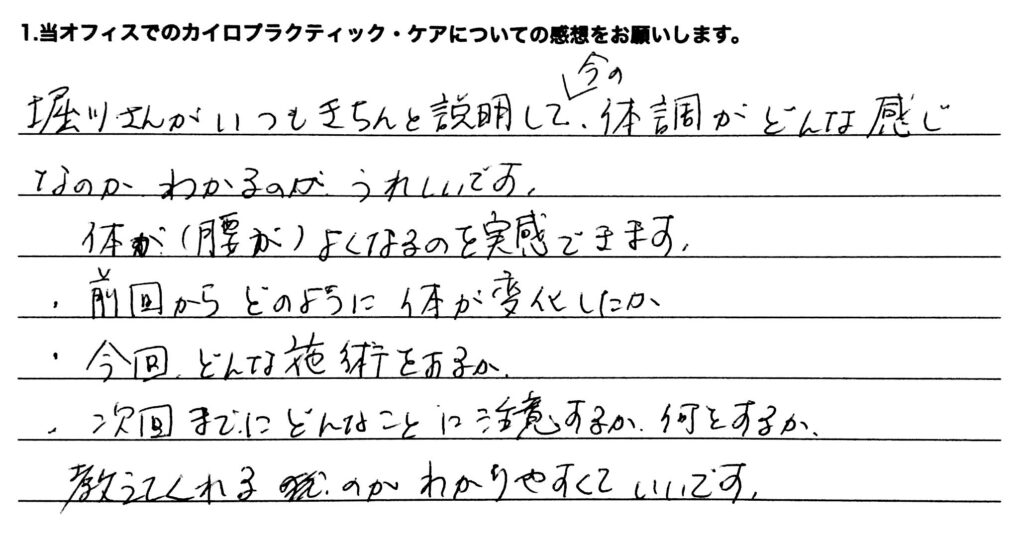 1.当オフィスでのカイロプラクティック・ケアについての感想をお願いします。
今の
堀川さんがいつもきちんと説明して、体調がどんな感じ
なのか、わかるのが、うれしいです。
体が(腰が)よくなるのを実感できます。
・前回からどのように体が変化したか
・今回、どんな施術をするか、
・次回までにどんなことに注意するか、何をするか、
教えてくれるのがわかりやすくていいです。